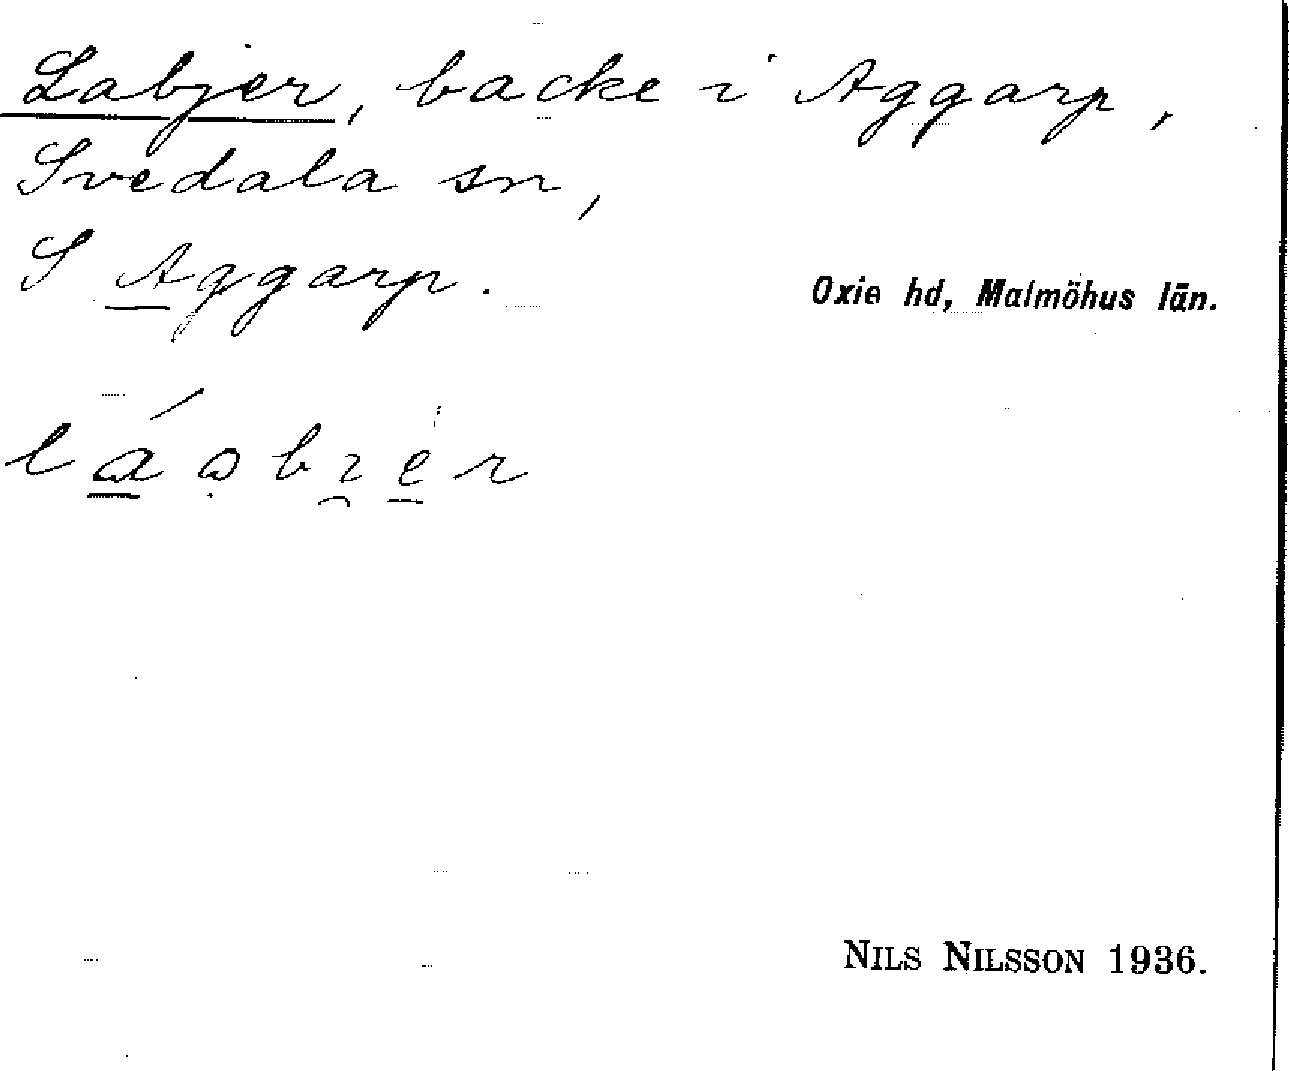 Labjer, backe i Aggarp,
Svedala sn,
S Aggarp.
Oxie hd, Malmöhus län.
NILS NILSSON 1936.